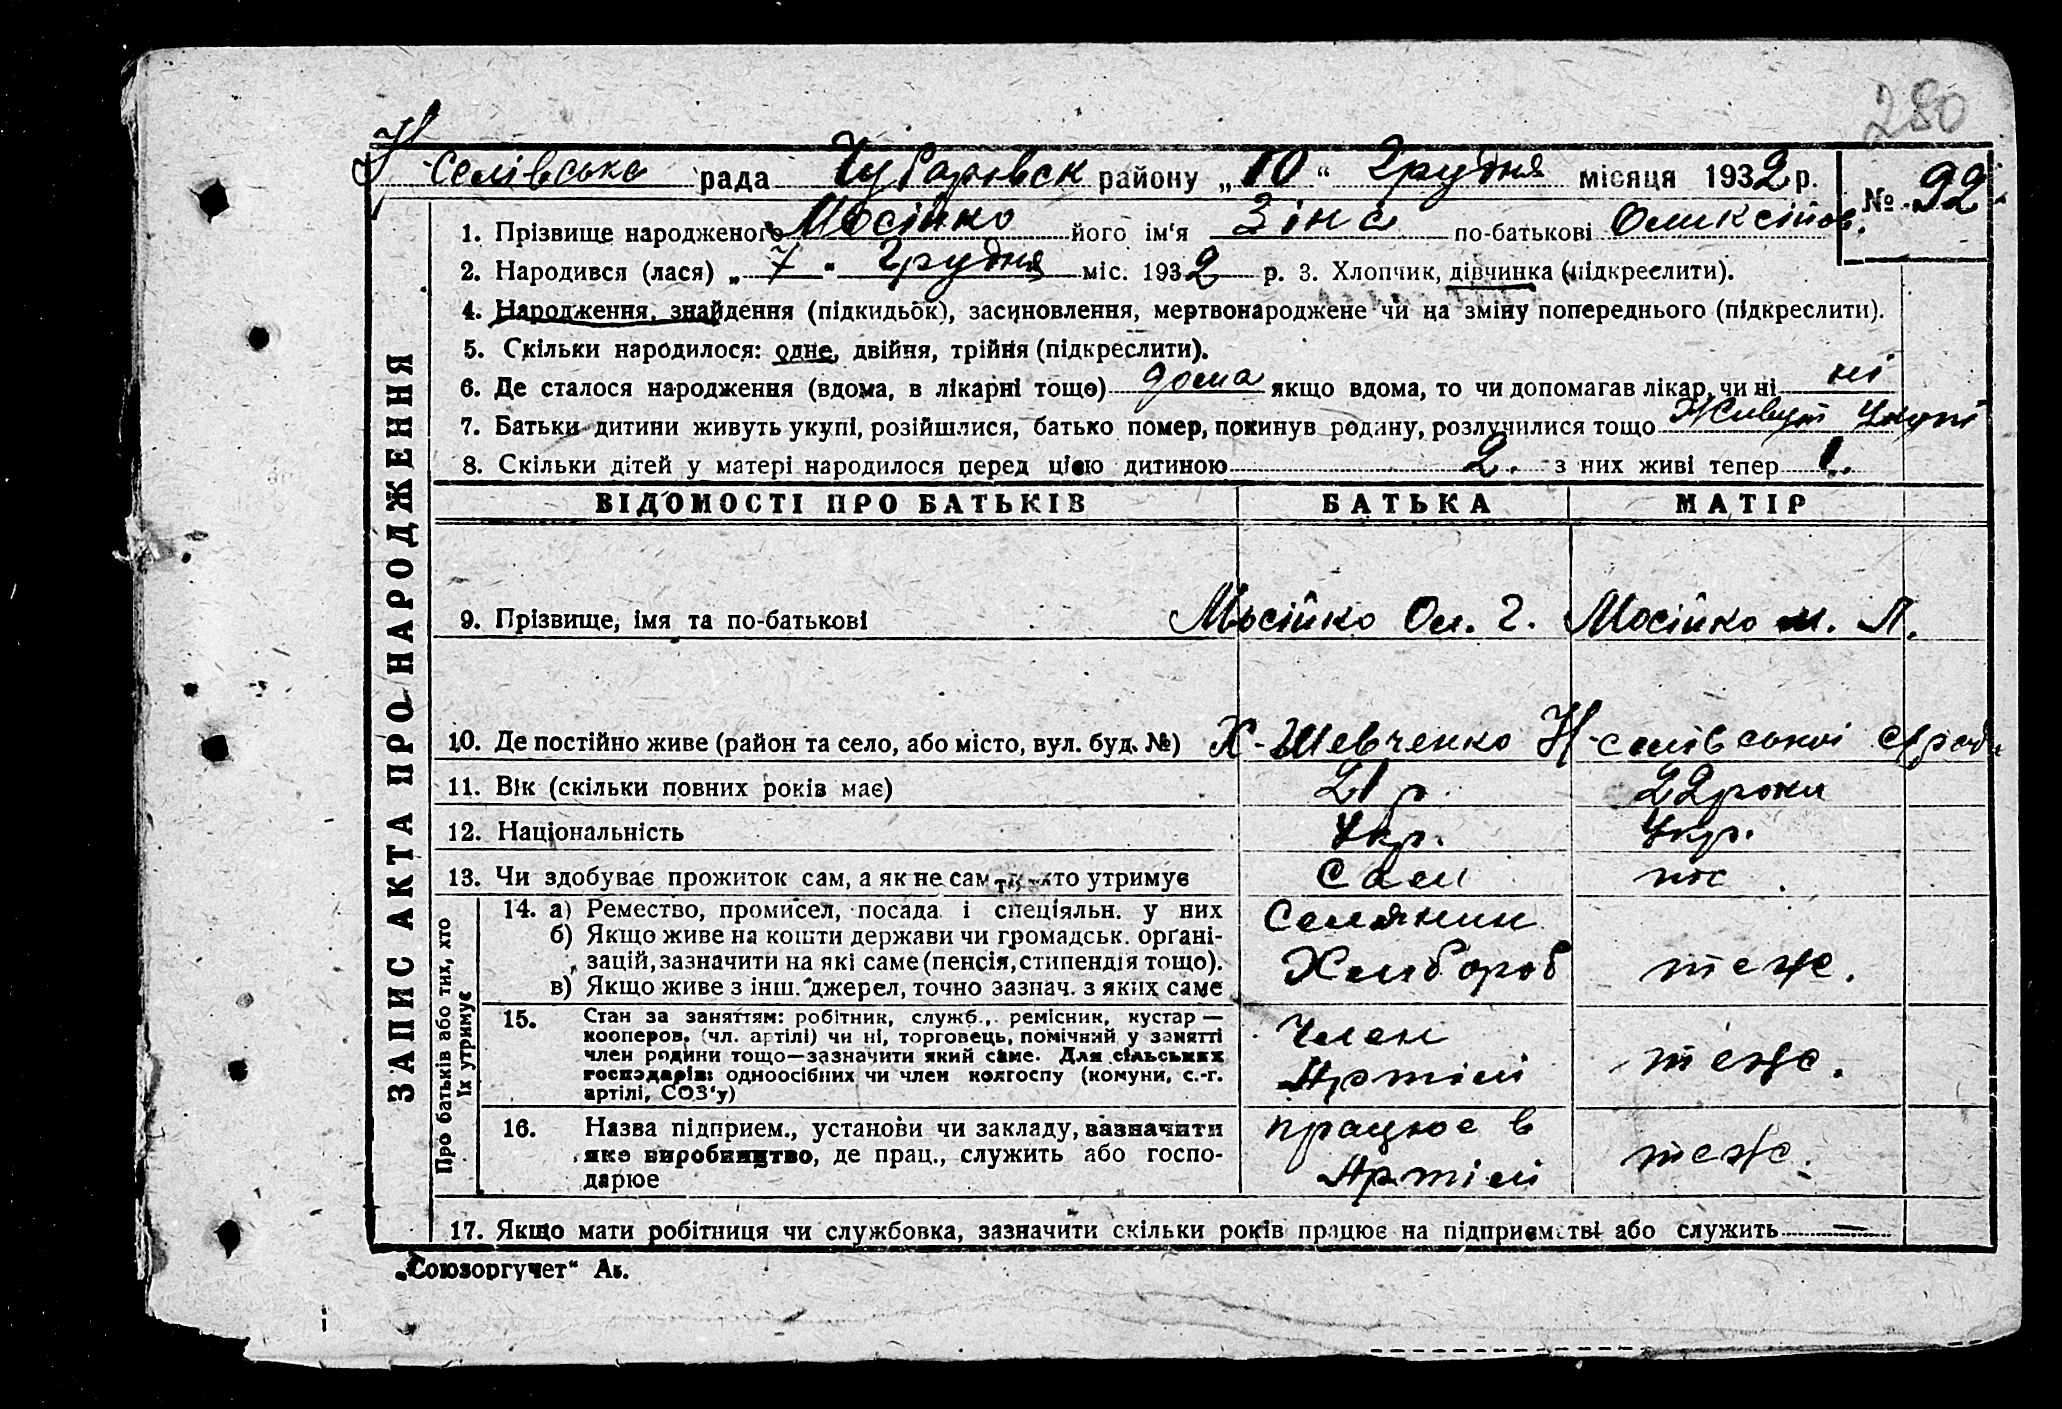 280
Н-Селівська рада Чубаровск району „10“ Грудня місяця 1932 р. № 92
1. Прізвище народженого Мосійко його ім'я Зіна по-батькові Оликсійов.
2. Народився (лася) „7“ Грудня міс. 1932 р. 3. Хлопчик, дівчинка (підкреслити).
4. Народження, знайдення (підкидьок), засиновлення, мертвонароджене чи на зміну попереднього (підкреслити).
5. Скільки народилося: одне, двійня, трійня (підкреслити).
6. Де сталося народження (вдома, в лікарні тощо) дома якщо вдома, то чи допомагав лікар, чи ні ні
7. Батьки дитини живуть укупі, розійшлися, батько помер, покинув родину, розлучилися тощо Живут Укупі
8. Скільки дітей у матері народилося перед цією дитиною 2. з них живі тепер 1.
ВІДОМОСТІ ПРО БАТЬКІВ БАТЬКА МАТІР
9. Прізвище, імя та по-батькові Мосійко Ол. Г. Мосійко М. Л.
10. Де постійно живе (район та село, або місто, вул. буд. №) Х-Шевченко Н-селівської с/ради
11. Вік (скільки повних років має) 21 р. 22 роки
12. Національність Укр. Укр.
13. Чи здобуває прожиток сам, а як не сам, то хто утримує Сам
14. а) Ремество, промисел, посада і спеціяльн. у них Селянин
б) Якщо живе на кошти держави чи громадськ. органі-
зацій, зазначити на які саме (пенсія, стипендія тощо). Хлібороб теж.
в) Якщо живе з інш. джерел, точно зазнач. з яких саме
15. Стан за заняттям: робітник, служб., ремісник, кустар — Член
кооперов. (чл. артілі) чи ні, торговець, помічний у занятті
член родини тощо—зазначити який саме. Для сільських теж.
господарів: одноосібних чи член колгоспу (комуни, с.-г. Артілі
артілі, СОЗ'у)
16. Назва підприєм., установи чи закладу, зазначити працює в
яке виробництво, де прац., служить або госпо- теж.
дарює Артілі
17. Якщо мати робітниця чи службовка, зазначити скільки років працює на підприємстві або служить
ЗАПИС АКТА ПРО НАРОДЖЕННЯ
Про батьків або тих, хто
їх утримує
„Союзоргучет“ Ак.